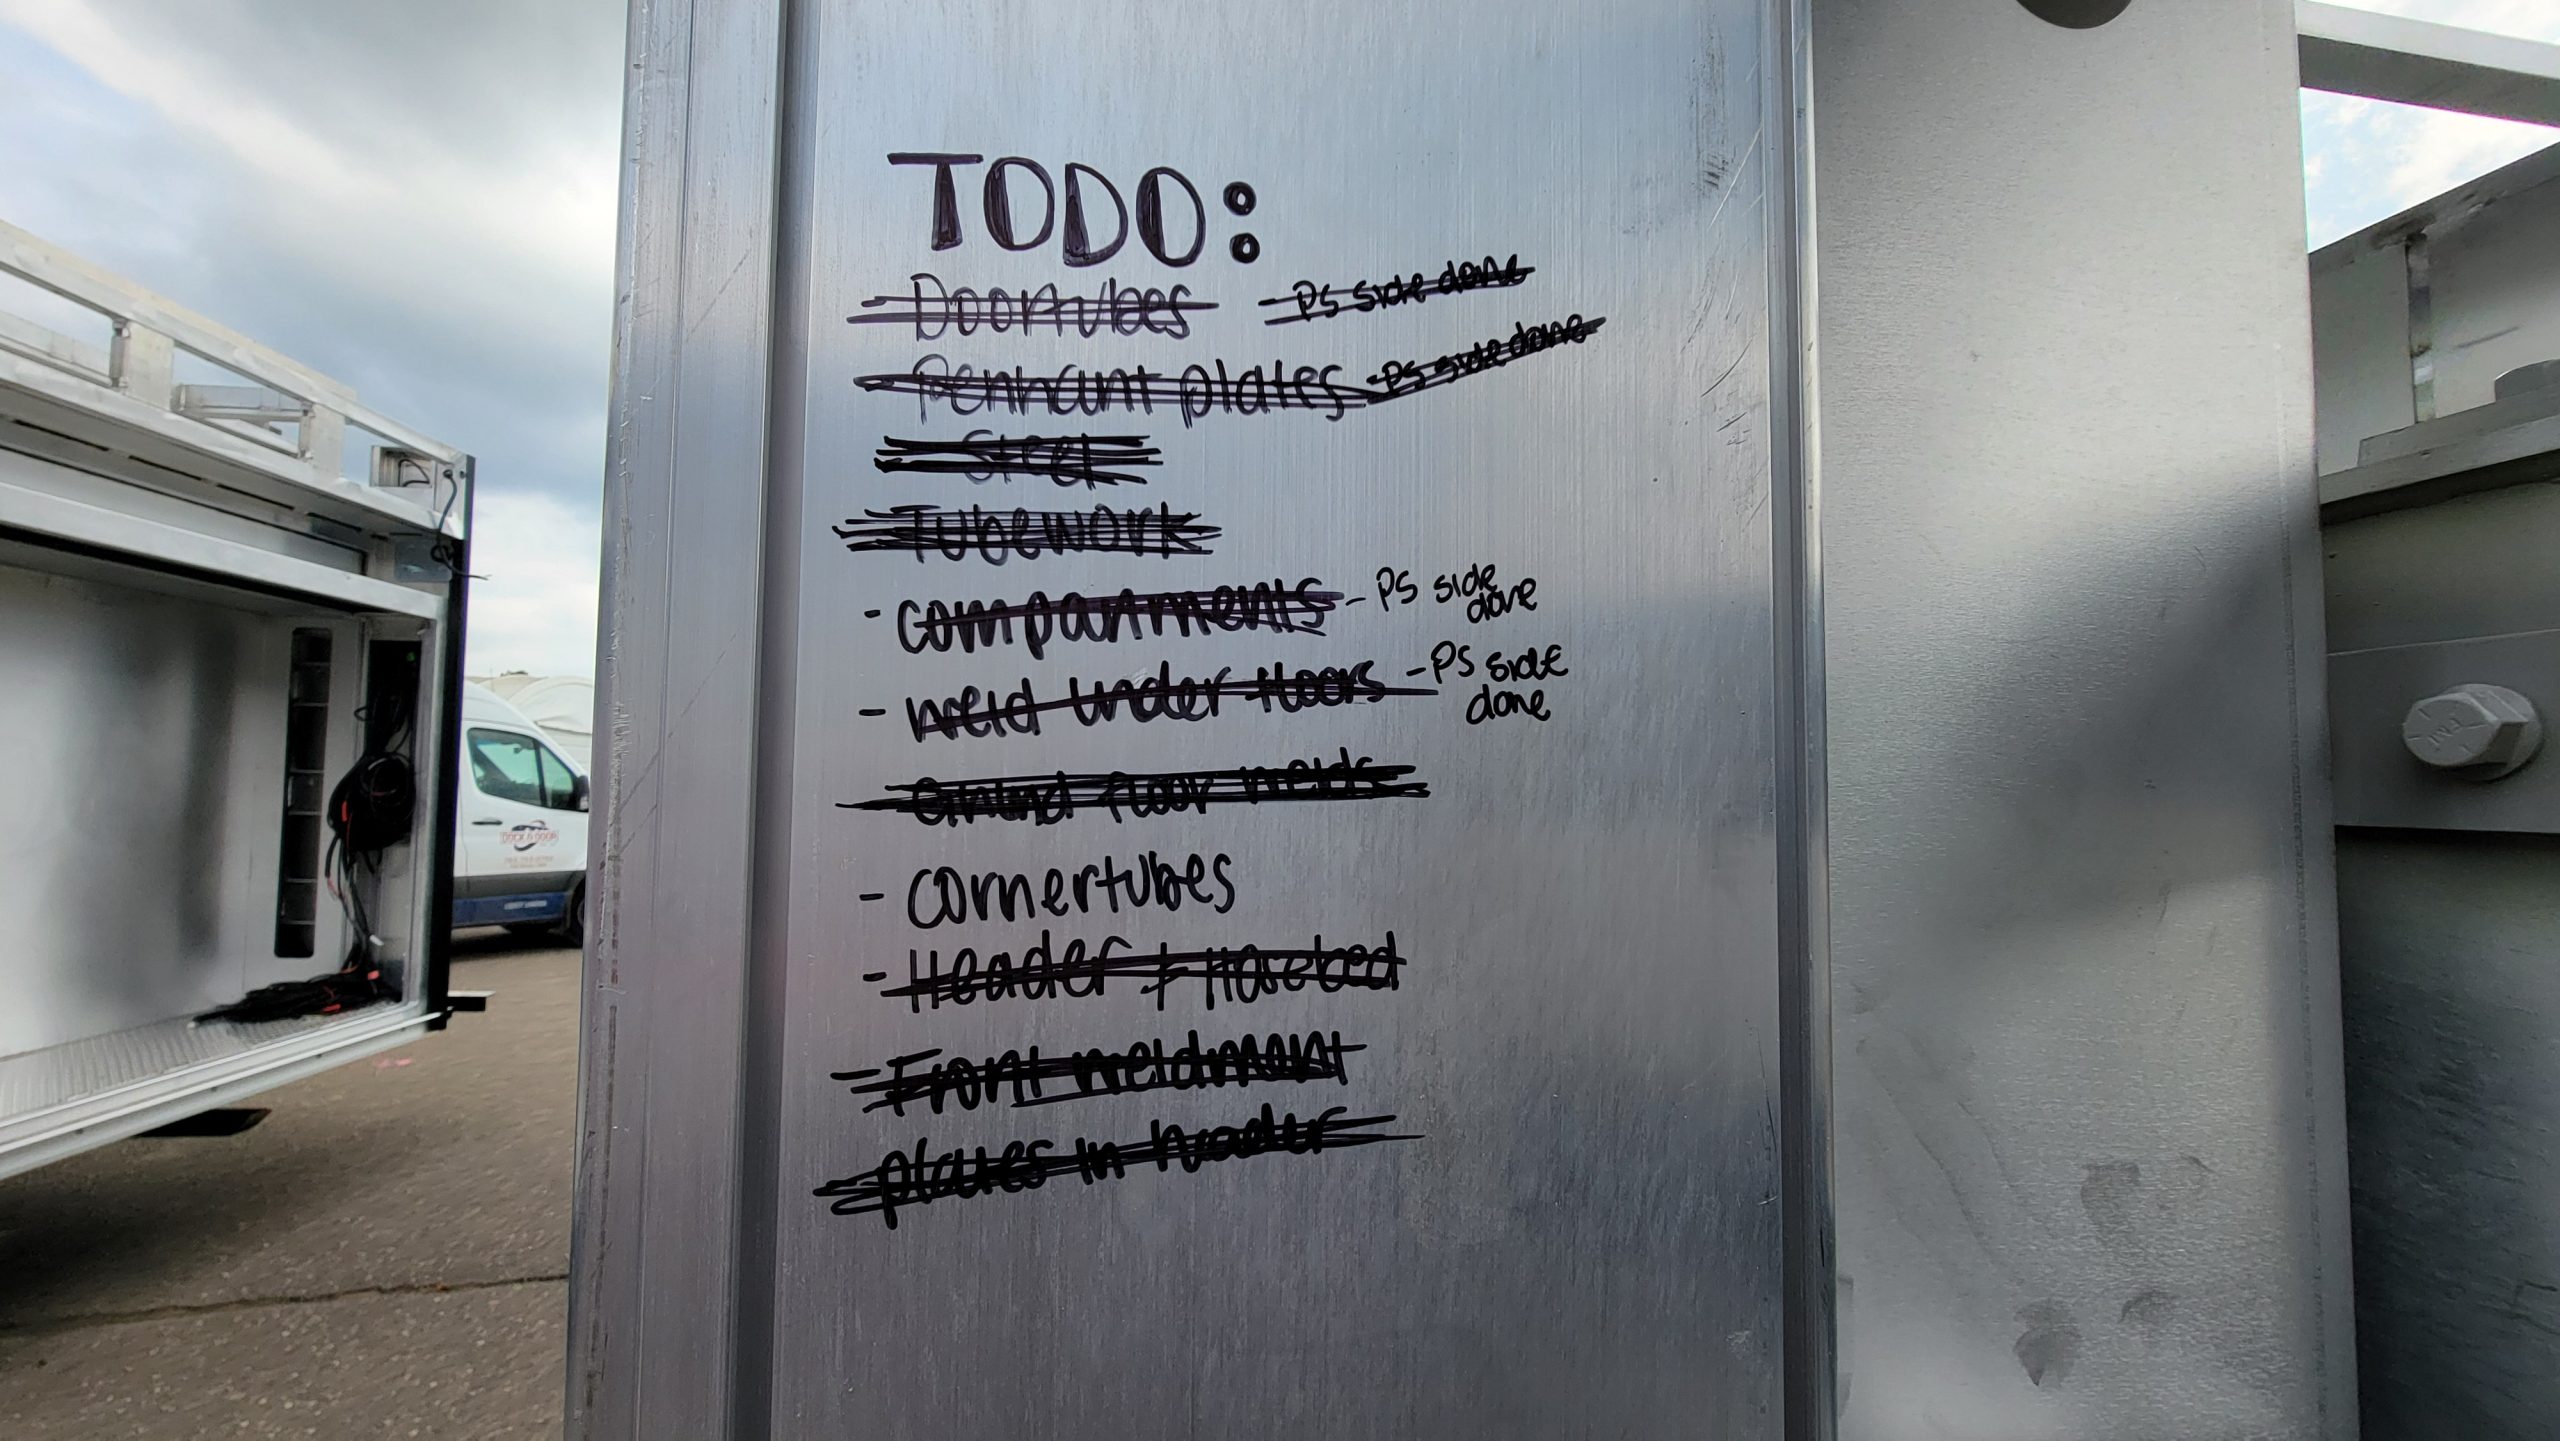 TODO:
- Doortubes - PS side done
- Pennant plates - PS side done
- Steel
- Tubework
- compartments - PS side
done
- weld under floors - PS side
done
- Grind floor welds
- cornertubes
- Header & Hosebed
- Front weldment
- plates in header